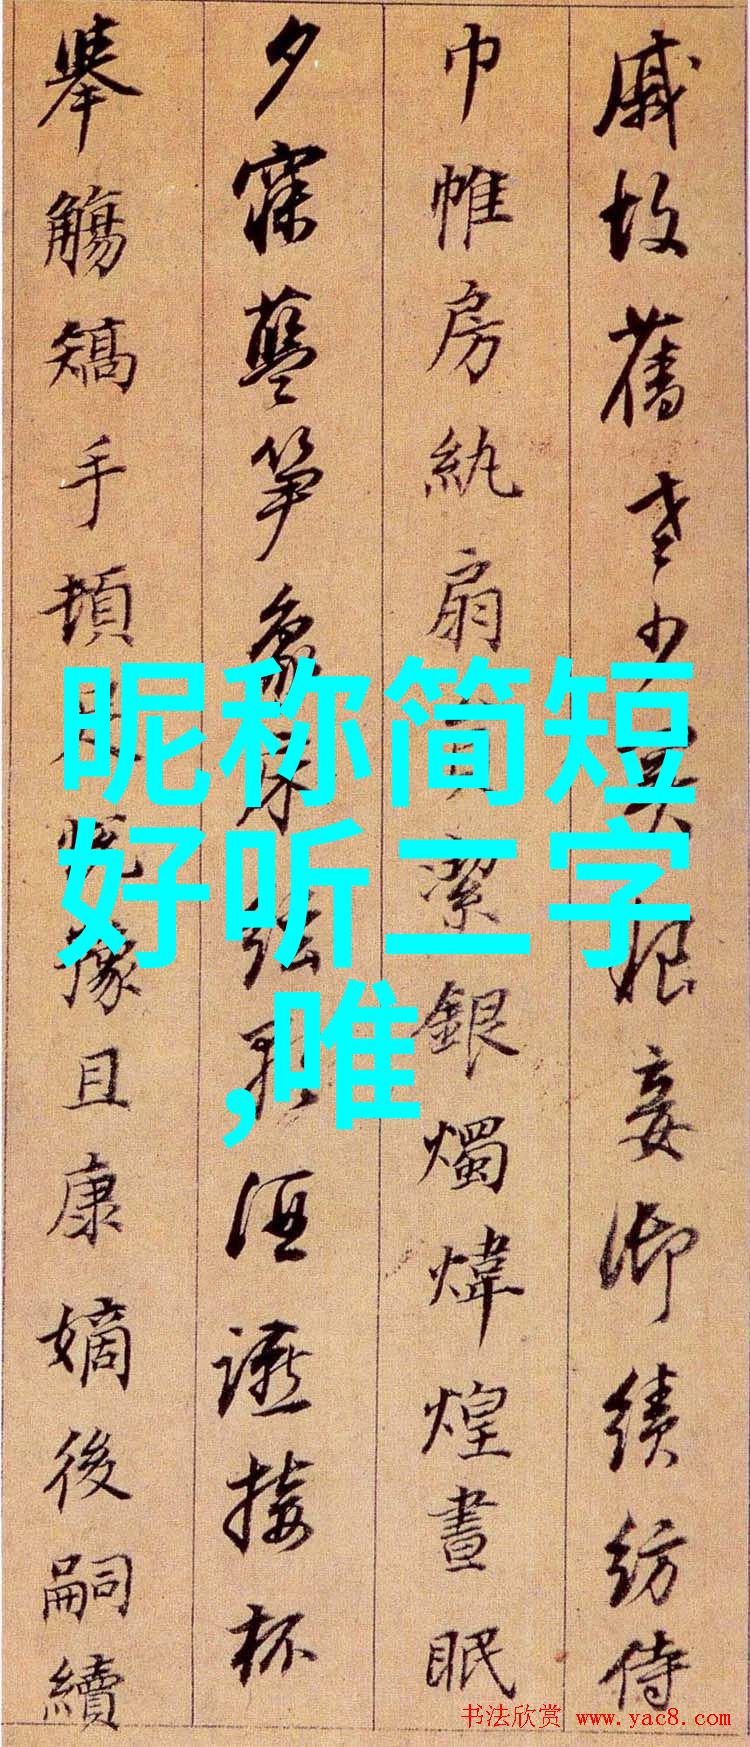 戚故舊老少異粮妾御績紡侍
巾帷房紈扇員潔銀燭煒煌晝眠
夕寐藍笋象床弦歌酒讌接杯
舉觴矯手頓足悅豫且康嫡後嗣續
昵称简短
好听二字
,唯
书法欣赏 www.yac8.com